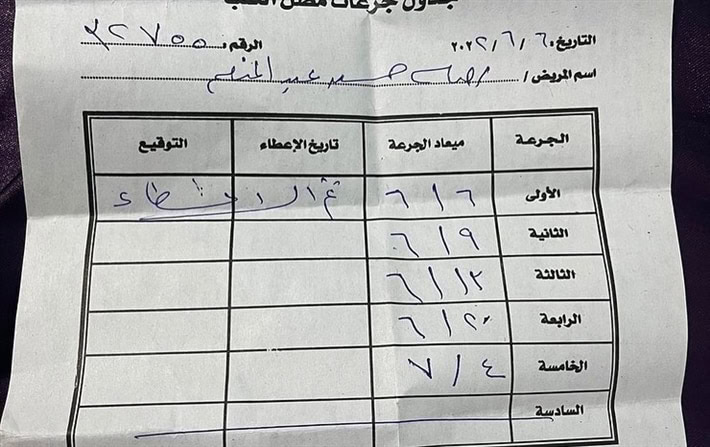 جدول جرعات مصل الكلب
التاريخ: ٦ / ٦ / ٢٠٢٢ الرقم: ٣٢٧٥٥
اسم المريض / عبد المنعم
الجرعة ميعاد الجرعة تاريخ الإعطاء التوقيع
الأولى ٦ / ٦ تم الاعطاء
الثانية ٩ / ٦
الثالثة ١٣ / ٦
الرابعة ٢٠ / ٦
الخامسة ٤ / ٧
السادسة